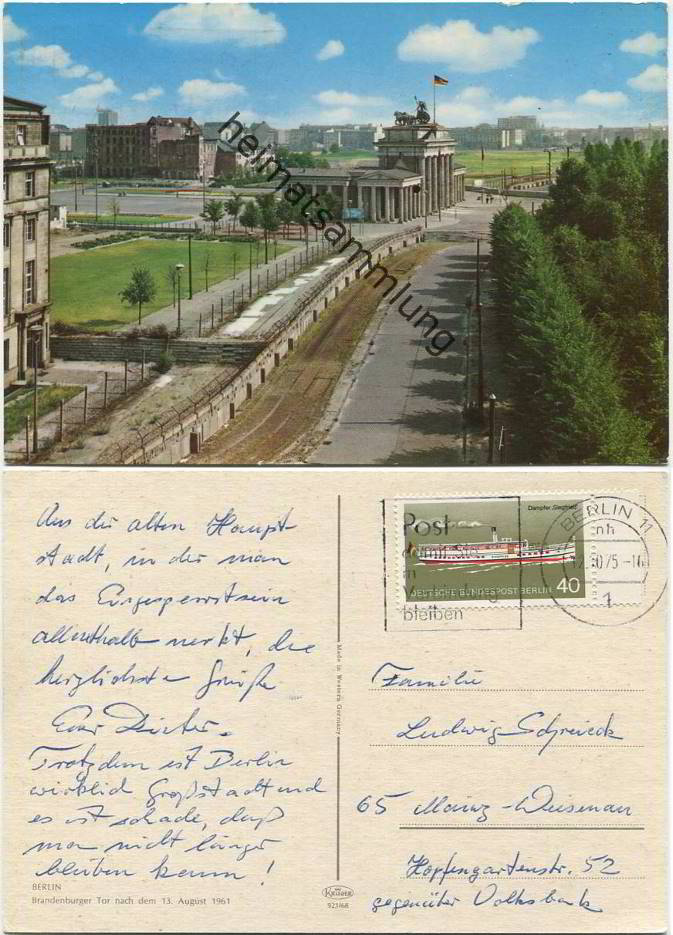 heimatsammlung
Aus der alten Haupt-
stadt, in der man
das Eingesperrtsein
allenthalb merkt, die
herzlichste Grüße
Euer Dieter.
Trotzdem ist Berlin
wirklich Großstadt und
es ist schade, daß
man nicht länger
bleiben kann!
BERLIN
Brandenburger Tor nach dem 13. August 1961
Made in Western Germany
KRÜGER
923/68
Dampfer „Siegfried“
DEUTSCHE BUNDESPOST BERLIN 40
Post
in
Verbindung
bleiben
BERLIN 11
nh
1
Familie
Ludwig Schreieck
65 Mainz-Weisenau
Hopfengartenstr. 52
gegenüber Volksbank